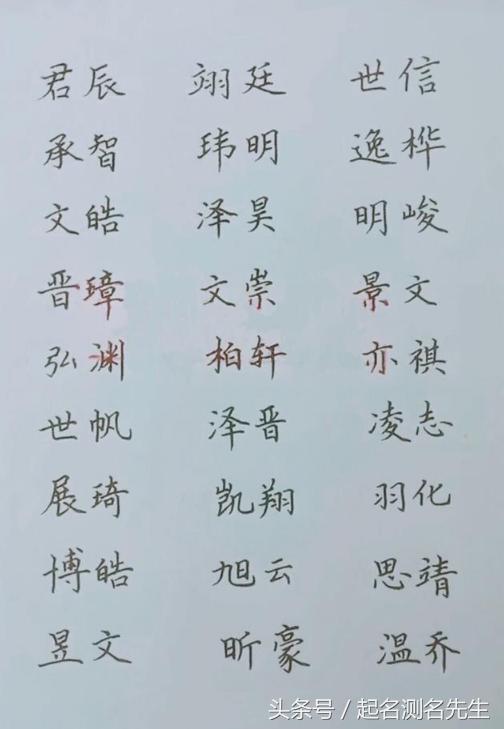 君辰 翊廷 世信
承智 玮明 逸桦
文皓 泽昊 明峻
晋璋 文崇 景文
弘渊 柏轩 亦祺
世帆 泽晋 凌志
展琦 凯翔 羽化
博皓 旭云 思靖
昱文 昕豪 温乔
头条号/起名测名先生